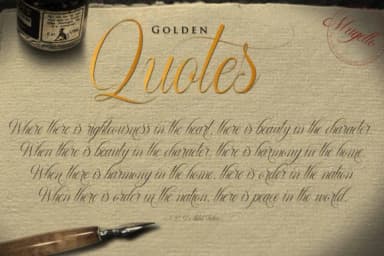 GOLDEN
Quotes
Where there is righteousness in the heart, there is beauty in the character.
When there is beauty in the character, there is harmony in the home.
When there is harmony in the home, there is order in the nation
When there is order in the nation, there is peace in the world.